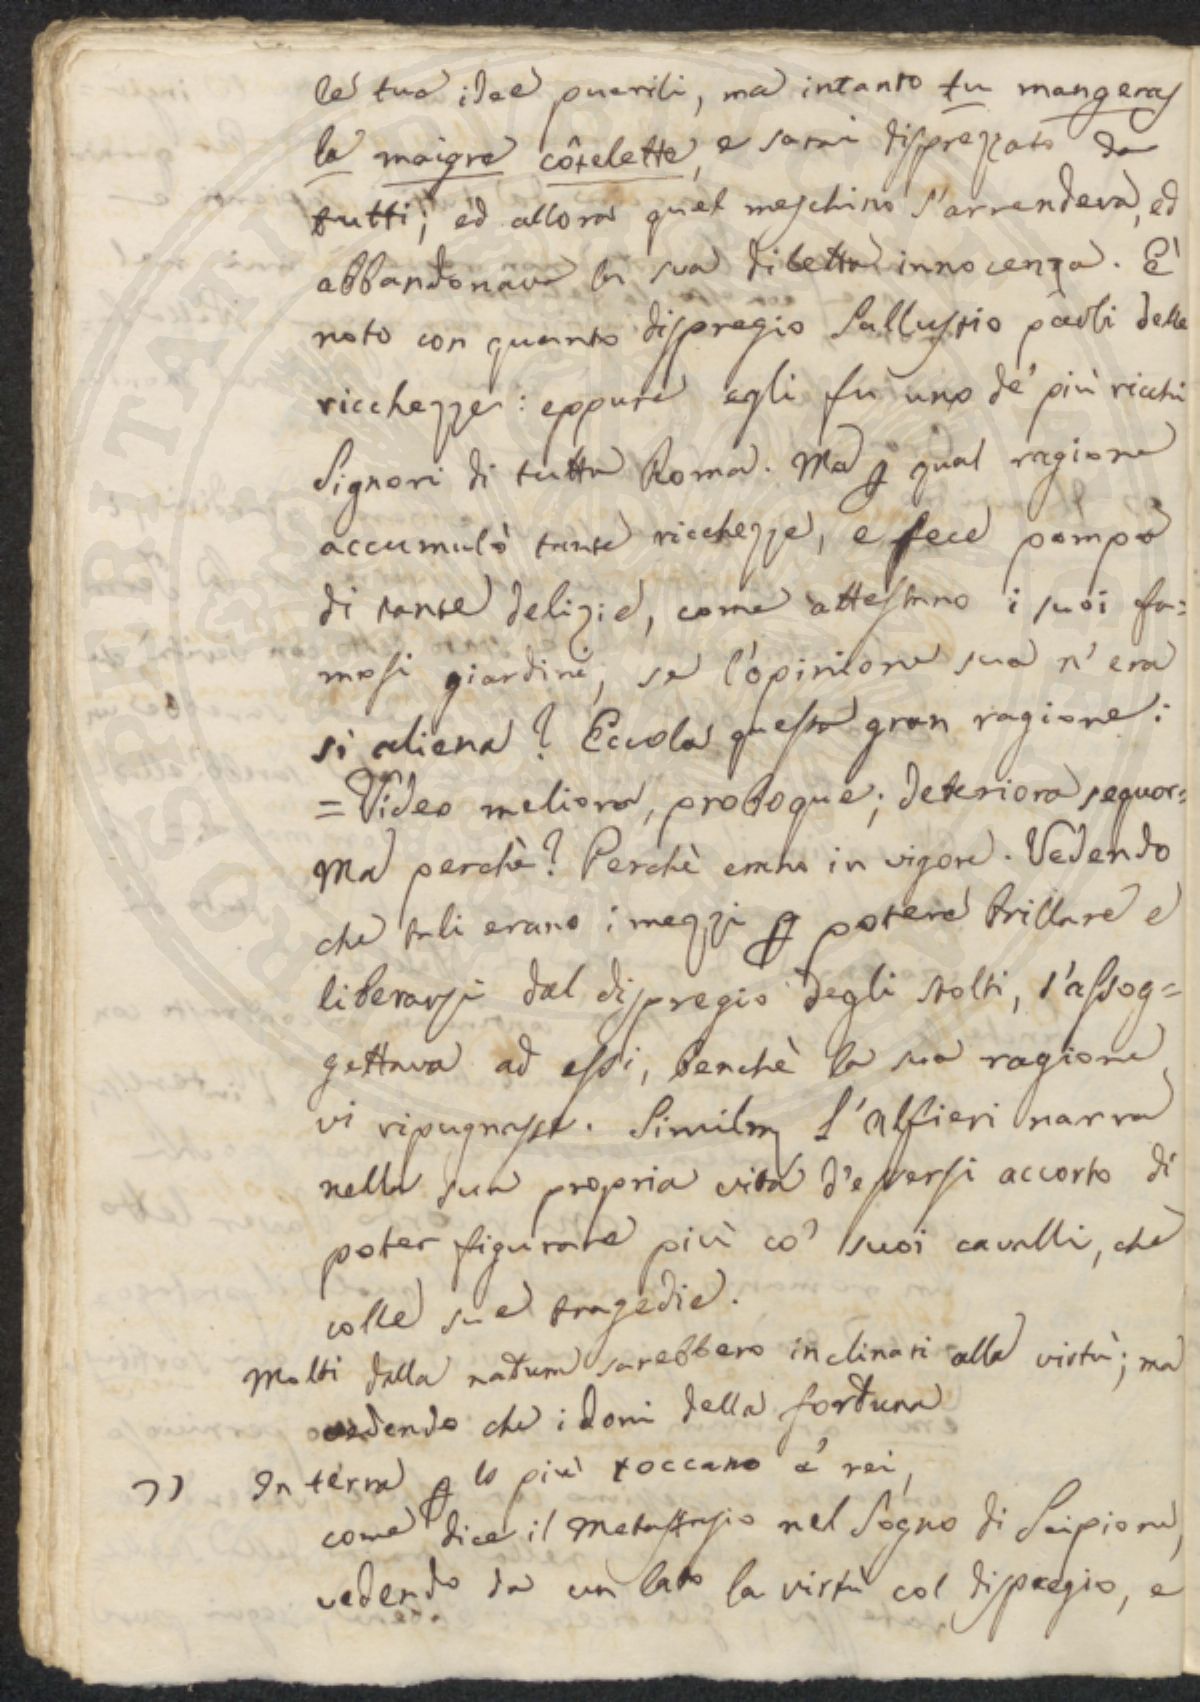 le tue idee puerili, ma intanto tu mangeras
la maigre côtelette, e sarai disprezzato da
tutti; ed allora quel meschino s'arrendeva, ed
abbandonava la sua diletta innocenza. È
noto con quanto dispregio Sallustio parli delle
ricchezze: eppure egli fu uno de' più ricchi
Signori di tutta Roma. Ma qual ragione
accumulò tante ricchezze, e fece pompa
di tante delizie, come attestano i suoi fa=
mosi giardini, se l'opinione sua n'era
sì aliena? Eccola questa gran ragione:
=Video meliora, proboque; deteriora sequor=
Ma perchè? Perchè erano in vigore. Vedendo
che tali erano i mezzi potere brillare e
liberarsi dal dispregio degli stolti, s'assog=
gettava ad essi, benchè la sua ragione
vi ripugnasse. Similm l'Alfieri narra
nella sua propria vita d'essersi accorto di
poter figurare più co' suoi cavalli, che
colle sue tragedie.
Molti dalla natura sarebbero inclinati alla virtù; ma
vedendo che i doni della fortuna
" In terra lo più toccano a' rei,
come dice il Metastasio nel Sogno di Scipione,
vedendo da un lato la virtù col dispregio, e
PROSPERITATI PUBLICAE